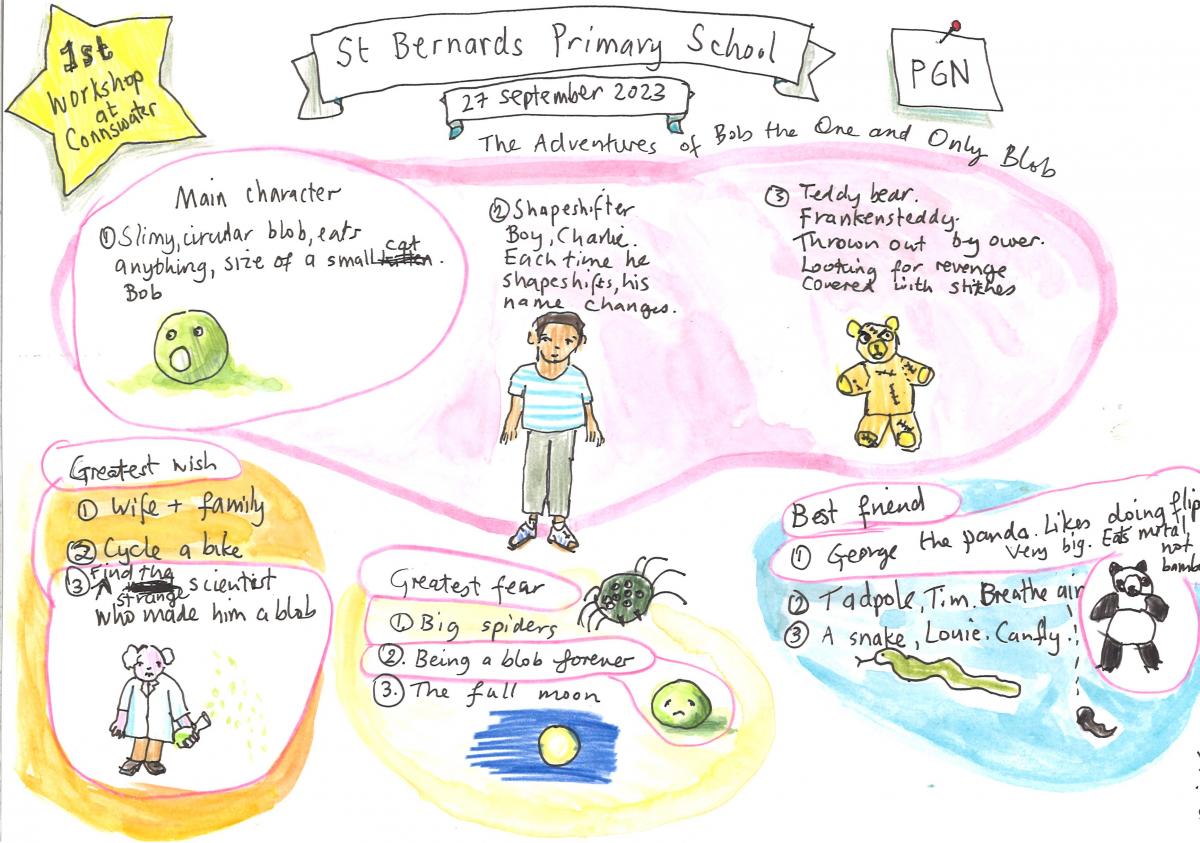 1st
Workshop
at
Connswater
St Bernards Primary School
27 September 2023
PGN
The Adventures of Bob the One and Only Blob
Main character
① Slimy, circular blob, eats
anything, size of a small kitten cat.
Bob
② Shapeshifter
Boy, Charlie.
Each time he
shapeshifts, his
name changes.
③ Teddy bear.
Frankensteddy.
Thrown out by ower.
Looking for revenge
Covered with stitches
Greatest wish
① Wife + family
② Cycle a bike
③ Find the strange scientist
who made him a blob
Greatest fear
①. Big spiders
②. Being a blob forever
③. The full moon
Best friend
① George the panda. Likes doing flip
Very big. Eats metal
not
bamb
② Tadpole, Tim. Breathe air
③ A snake, Louie. Can fly.